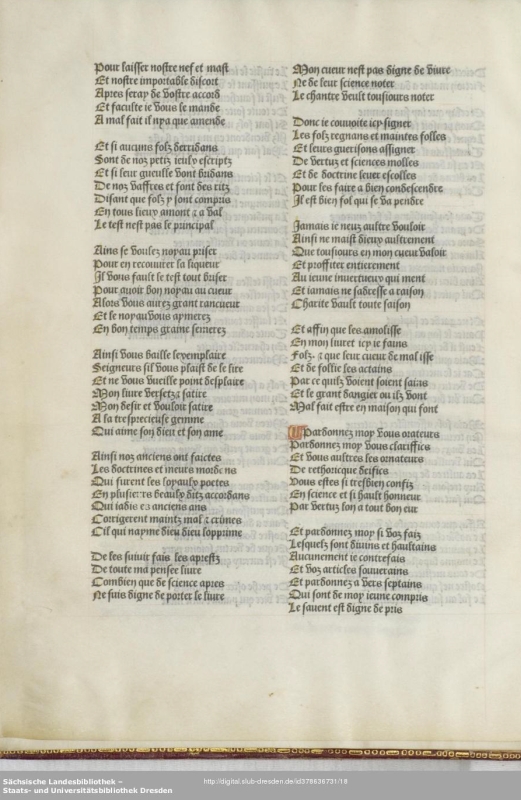 Pour laisser nostre nef et mast
Et nostre importable discort
Apres seray de vostre accord
Et faculte ie vous le mande
A mal fait il nya que amende
Et si aucuns folz derridans
Sont de noz petiz ieulx escriptz
Et si leur gueulle vont bridans
De noz baffres et font des ritz
Disant que folz y sont compris
En tous lieux amont & a val
Le test nest pas le principal
Ains se voulez noyau priser
Pour en recouurer la liqueur
Il vous fault le test tout briser
Pour auoir bon noyau au cueur
Alors vous aurez grant rancueur
Et le noyau vous aymerez
En bon temps graine semerez
Ainsi vous baille lexemplaire
Seigneurs sil vous plaist de le lire
Et ne vous vueille point desplaire
Mon liure versetz & satire
Mon desir et vouloir satire
A la tresprecieuse gemme
Qui aime son dieu et son ame
Ainsi noz anciens ont faictes
Les doctrines et meurs mordens
Qui furent les loyaulx poetes
En plusieurs beaulx ditz accordans
Qui iadis es anciens ans
Corrigerent maintz mal & crimes
Cil qui nayme dieu dieu lopprime
De les suiuir fais les aprestz
De toute ma pensee liure
Combien que de science apres
Ne suis digne de porter le liure
Mon cueur nest pas digne de viure
Ne de leur science noter
Le chantre veult tousiours noter
Donc ie conuoite icy signer
Les folz regnans et maintes folles
Et leurs guerisons assigner
De vertuz et sciences molles
Et de doctrine leuer escolles
Pour les faire a bien condescendre
Il est bien fol qui se va pendre
Jamais ie neuz aultre vouloir
Ainsi ne maist dieux aultrement
Que tousiours en mon cueur valoir
Et proffiter entierement
Au ieune inuertueux qui ment
Et iamais ne sadresse a raison
Charite vault toute saison
Et affin que les amolisse
En mon liuret icy ie fains
Folz. & que leur cueur de mal isse
Et de follie les actains
Par ce quilz voient soient sains
Et le grant dangier ou ilz vont
Mal fait estre en maison qui font
Pardonnez moy vous orateurs
Pardonnez moy vous clariffics
Et vous aultres les ornateurs
De rethoricque deifics
Vous estes si tresbien confiz
En science et si hault honneur
Par vertuz lon a tout bon eur
Et pardonnez moy si voz faiz
Lesquelz sont diuins et haultains
Aucunement ie contrefais
Et voz articles souuerains
Et pardonnez a vers septains
Qui sont de moy ieune compris
Le sauent est digne de pris
Sächsische Landesbibliothek –
Staats- und Universitätsbibliothek Dresden
http://digital.slub-dresden.de/id378636731/18